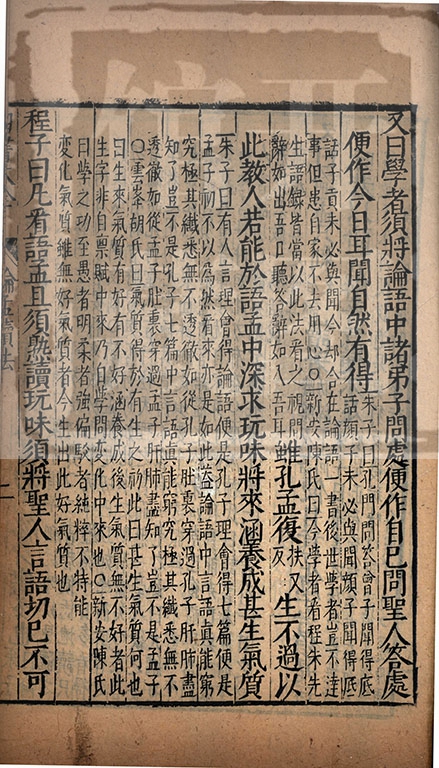 又曰學者須將論語中諸弟子問處便作自已問聖人荅處
便作今日耳聞自然有得朱子曰孔門問荅曾子聞得底
話顔子未必與聞顔子聞得底
話子貢未必與聞今却合在論語一書後世學者豈不逹
事但患自家不去用心○新安陳氏曰今學者看程朱先
生語錄皆當以此法看之視問
辭如出吾口聽荅辭如入吾耳雖孔孟復扶又
反生不過以
此教人若能於語孟中深求玩味將來涵養成甚生氣質
朱子曰有人言理會得論語便是孔子理會得七篇便是
孟子初不以為然看來亦是如此蓋論語中言語真能窮
究極其纖悉無不透徹如從孔子肚裏穿過孔子肝肺盡
知了豈不是孔子七篇中言語真能窮究極其纖悉無不
透徹如從孟子肚裏穿過孟子肝肺盡知了豈不是孟子
○雲峯胡氏曰氣質得於有生之初此曰甚生氣質何也
曰生來氣質有好有不好涵養成後生氣質無不好者此
生字非自禀賦中來乃自學問變化中來也○新安陳氏
曰學之功至愚者明柔者強偏駁者純粹不特能
變化氣質雖無好氣質者今生出此好氣質也
程子曰凡看語孟且須熟讀玩味須將聖人言語切已不可
論語讀法
二